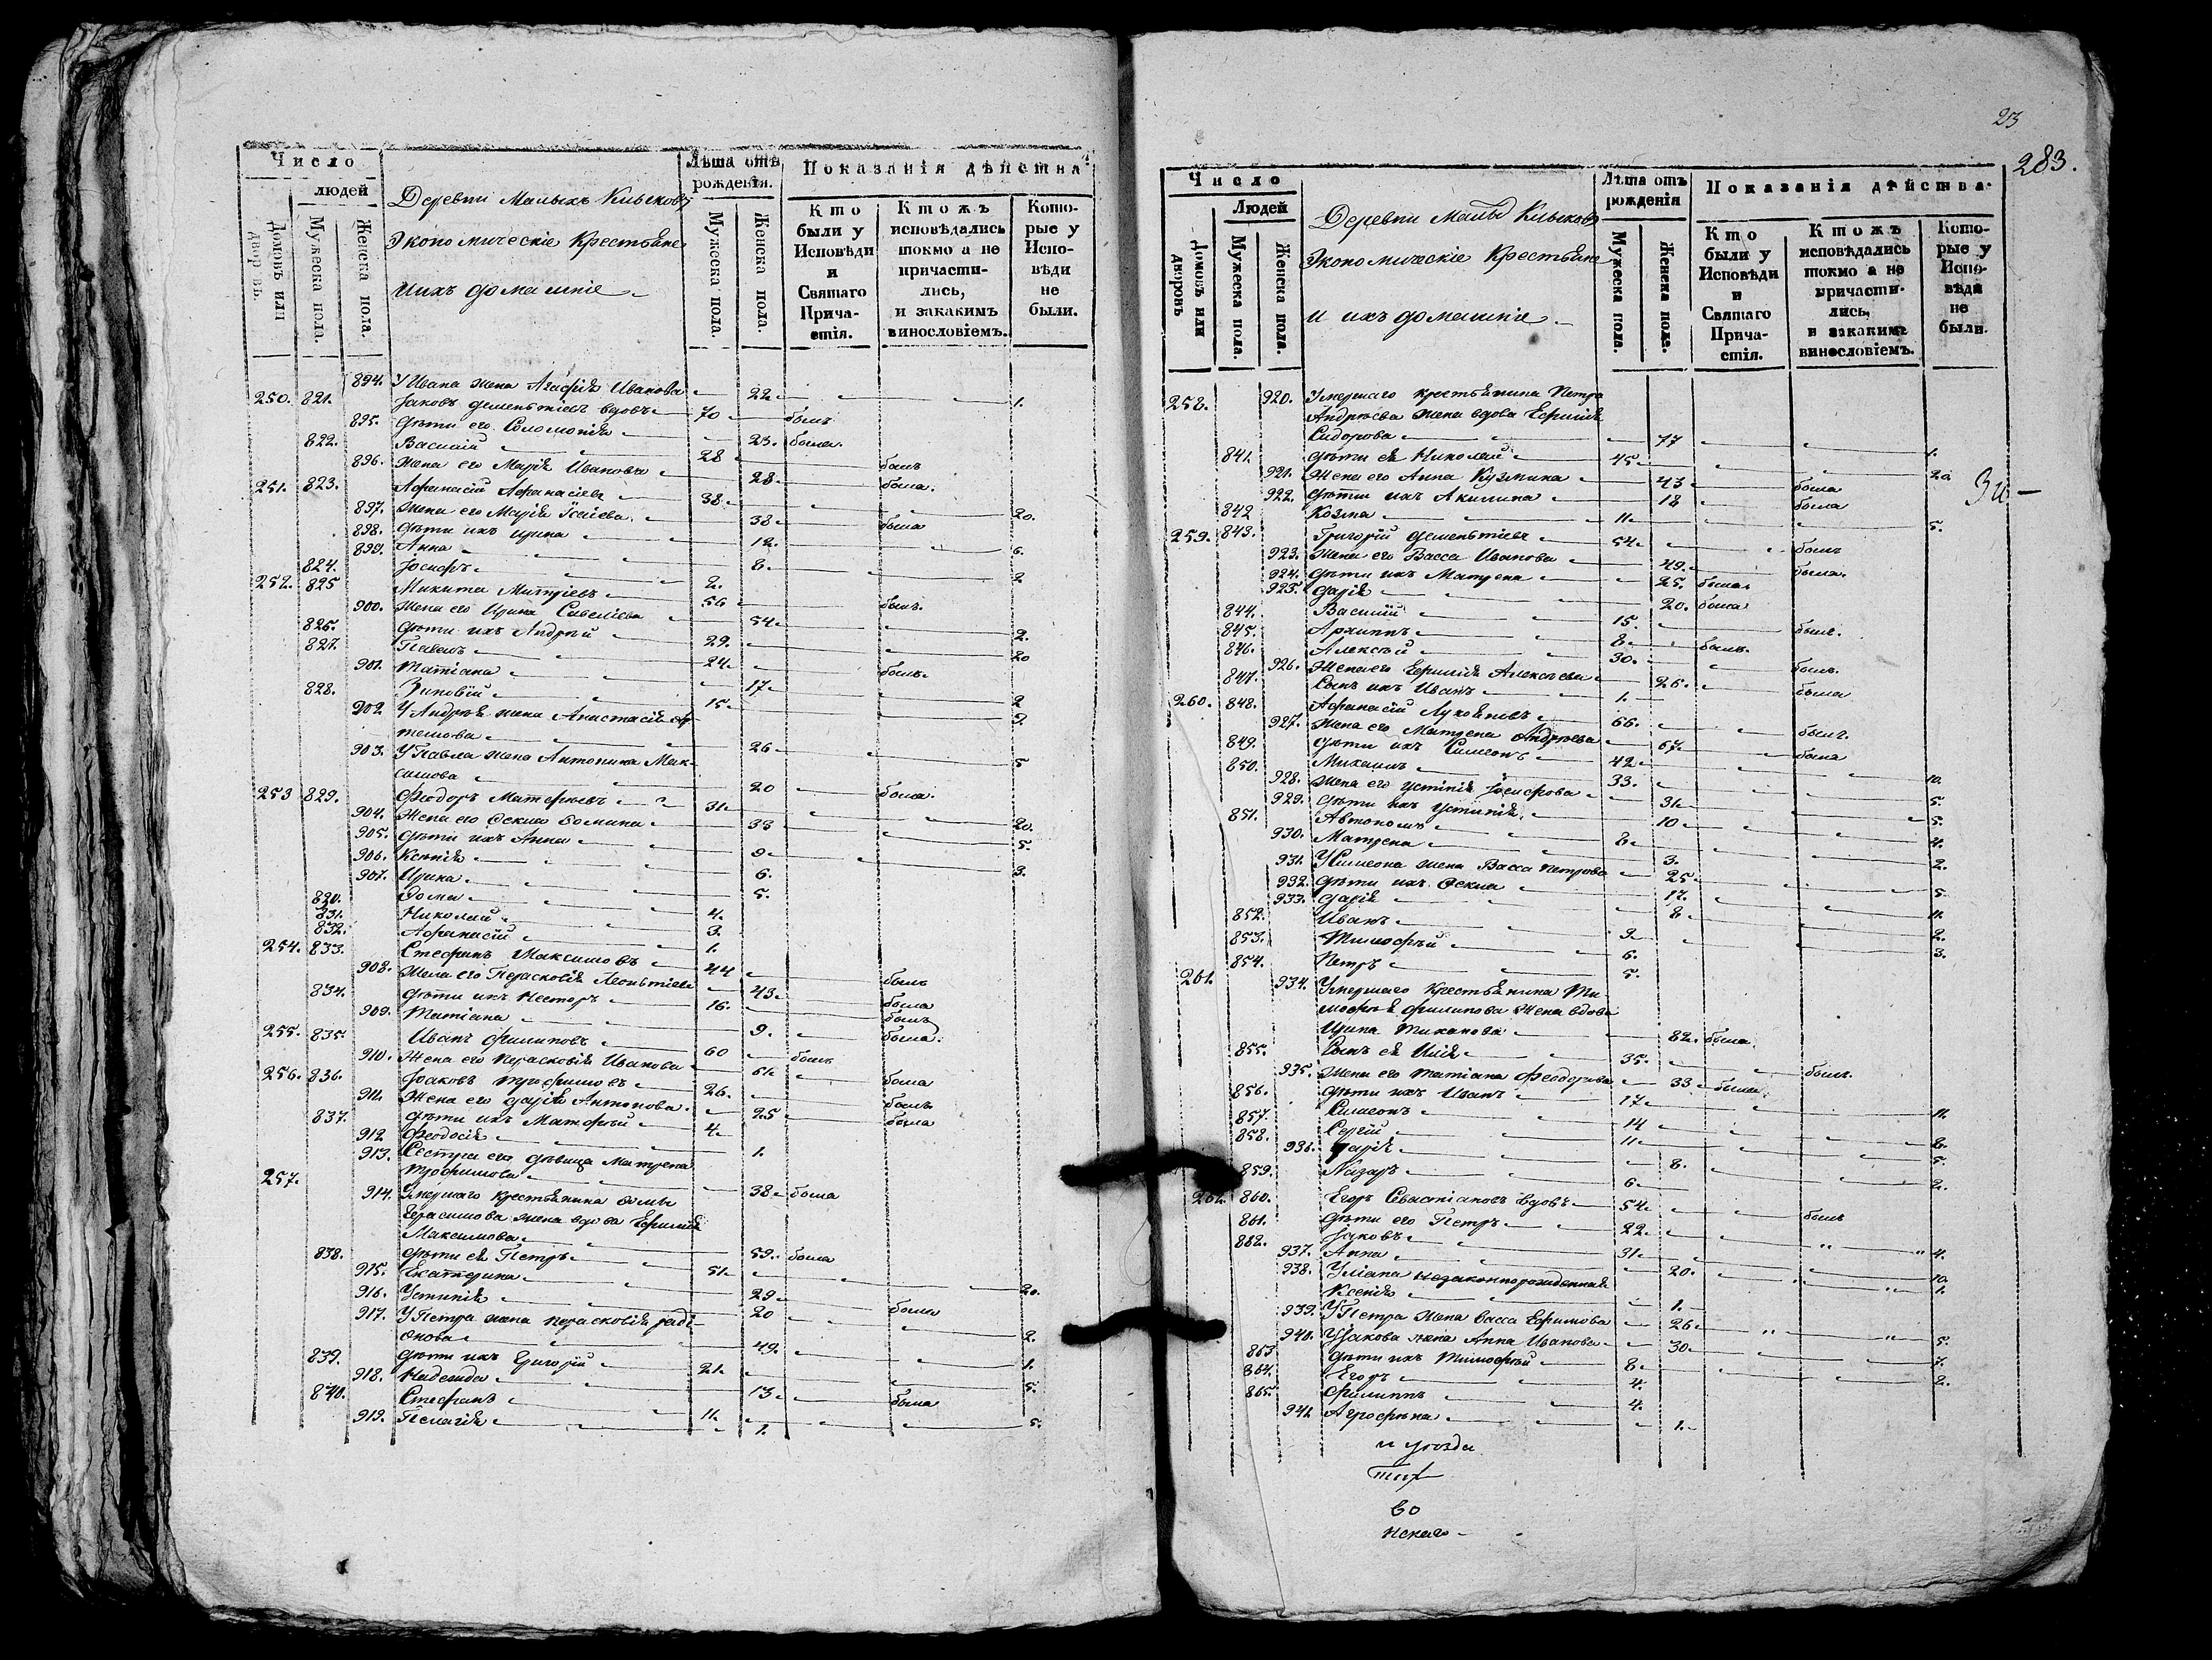 Число
людей
Домовъ или дворовъ
Мужеска пола.
Женска пола.
Деревни Малыхъ Клыковъ
Экономическіе Крестьяне
и ихъ домашніе
Лѣта отъ рожденія.
Мужеска пола.
Женска пола.
Показанія дѣйства
Кто были у Исповѣди и Святаго Причастія.
Ктожъ исповѣдались токмо а не причастились, и закакимъ винословіемъ.
Которые у Исповѣди не были.
894. У Ивана жена Агафія Иванова 22 1.
250. 821. Іаковъ Дементіевъ вдовъ 70 былъ
895. Дѣти его Соломонія 23. была
822. Василій 28 былъ
896. Жена его Марія Иванова 28 была.
251. 823. Афанасій Афанасіевъ 38 20.
897. Жена его Марія Исаіева 38 была
898. Дѣти ихъ Ирина 12. 6.
899. Анна 8 2
824. Іосифъ 2.
252. 825 Никита Митріевъ 56 былъ.
900. Жена его Ирина Савеліева 54 2.
826. Дѣти ихъ Андрей 29. 20
827. Павелъ 24 былъ.
901. Татіана 17 2
828. Зиновій 15 2.
902. У Андрея жена Анастасія Ар-
темова 26 5
903. У Павла жена Антонина Мак-
симова 20 была.
253 829. Феодоръ Матфѣевъ 31 20.
904. Жена его Фекла Фомина 33 5.
905. Дѣти ихъ Анна 9 3.
906. Ксенія 6.
907. Ирина 5.
830. Фома 4.
831. Николай 3.
832. Афанасій 1.
254. 833. Стефанъ Максимовъ 44 былъ
908. Жена его Параскевія Леонтіева 43 была
834. Дѣти ихъ Несторъ 16. былъ
909. Татіана 9. была.
255. 835. Иванъ Филиповъ 60 былъ
910. Жена его Параскевія Иванова 61 была
256. 836. Іаковъ Трофимовъ 26. былъ
911. Жена его Дарія Антонова 25 была
837. Дѣти ихъ Матфей 4
912 Феодосія 1.
913. Сестра его дѣвица Матрена
Трофимова 38 была
257. 914. Умершаго крестьянина Фомы
Герасимова жена вдова Ефимія
Максимова 59. была
838. Дѣти ея Петръ 51 20.
915. Екатерина 29 была
916. Устинія 20 2.
917. У Петра жена Параскевія Раді-
онова 49. 1.
839. Дѣти ихъ Григорій 21. 5.
918. Надежда 13 была
840. Стефанъ 11. 5.
919. Пелагія 1.
23
283.
Число
Людей
Домовъ или дворовъ
Мужеска пола.
Женска пола.
Деревни Малыхъ Клыковъ
Экономическіе Крестьяне
и ихъ домашніе
Лѣта отъ рожденія
Мужеска пола.
Женска пола.
Показанія дѣйства.
Кто были у Исповѣди и Святаго Причастія.
Ктожъ исповѣдались токмо а не причастились, и закакимъ винословіемъ.
Которые у Исповѣди не были.
258. 920. Умершаго крестьянина Петра
Андреева жена вдова Ефимія
Сидорова 77 1.
841. Дѣти ея Николай 45 20
921. Жена его Анна Кузмина 43 была
922. Дѣти ихъ Акилина 18 была
842 Козма 11 5.
259. 843. Григорій Дементіевъ 54 былъ
923. Жена его Васса Иванова 49. была.
924. Дѣти ихъ Матрена 25. была
925. Дарія 20. была
844. Василій 15. былъ.
845. Архиппъ 8 былъ.
846. Алексей 30. былъ.
926. Жена его Ефимія Алексеева 26. была
847. Сынъ ихъ Иванъ 1.
260. 848. Афанасій Лукьяновъ 66. былъ.
927. Жена его Матрена Андреева 67. была
849. Дѣти ихъ Симеонъ 42 10.
850. Михаилъ 33. 5.
928. Жена его Устинія Іосифова 31 5.
929. Дѣти ихъ Устинія 10 4.
851. Автономъ 8 2.
930. Матрена 3.
931. У Симеона жена Васса Петрова 25 5
932. Дѣти ихъ Фекла 17. 11.
933. Дарія 8 2.
852. Иванъ 9 3.
853. Тимофей 6.
854. Петръ 5.
261. 934. Умершаго Крестьянина Ти-
мофея Филипова Жена вдова
Ирина Тиханова 82. была.
855. Сынъ ея Илія 35. былъ.
935. Жена его Татіана Феодорова 33 была
856. Дѣти ихъ Иванъ 17 11.
857. Симеонъ 14 8.
858. Сергій 11 5.
936. Дарія 8. 2.
859. Назаръ 6
262. 860. Егоръ Севастіановъ вдовъ 54. былъ
861. Дѣти его Петръ 22 4.
862. Іаковъ 31 10.
937. Анна 20. 1.
938. Уліана незаконнорожденная
Ксенія 1.
939. У Петра жена Васса Ефимова 26 5.
940. У Іакова жена Анна Иванова 30 7.
863 Дѣти ихъ Тимофей 8 2.
864. Егоръ 4.
865. Филиппъ 4.
941 Агрофена 1.
и уѣзда
во
нскаго